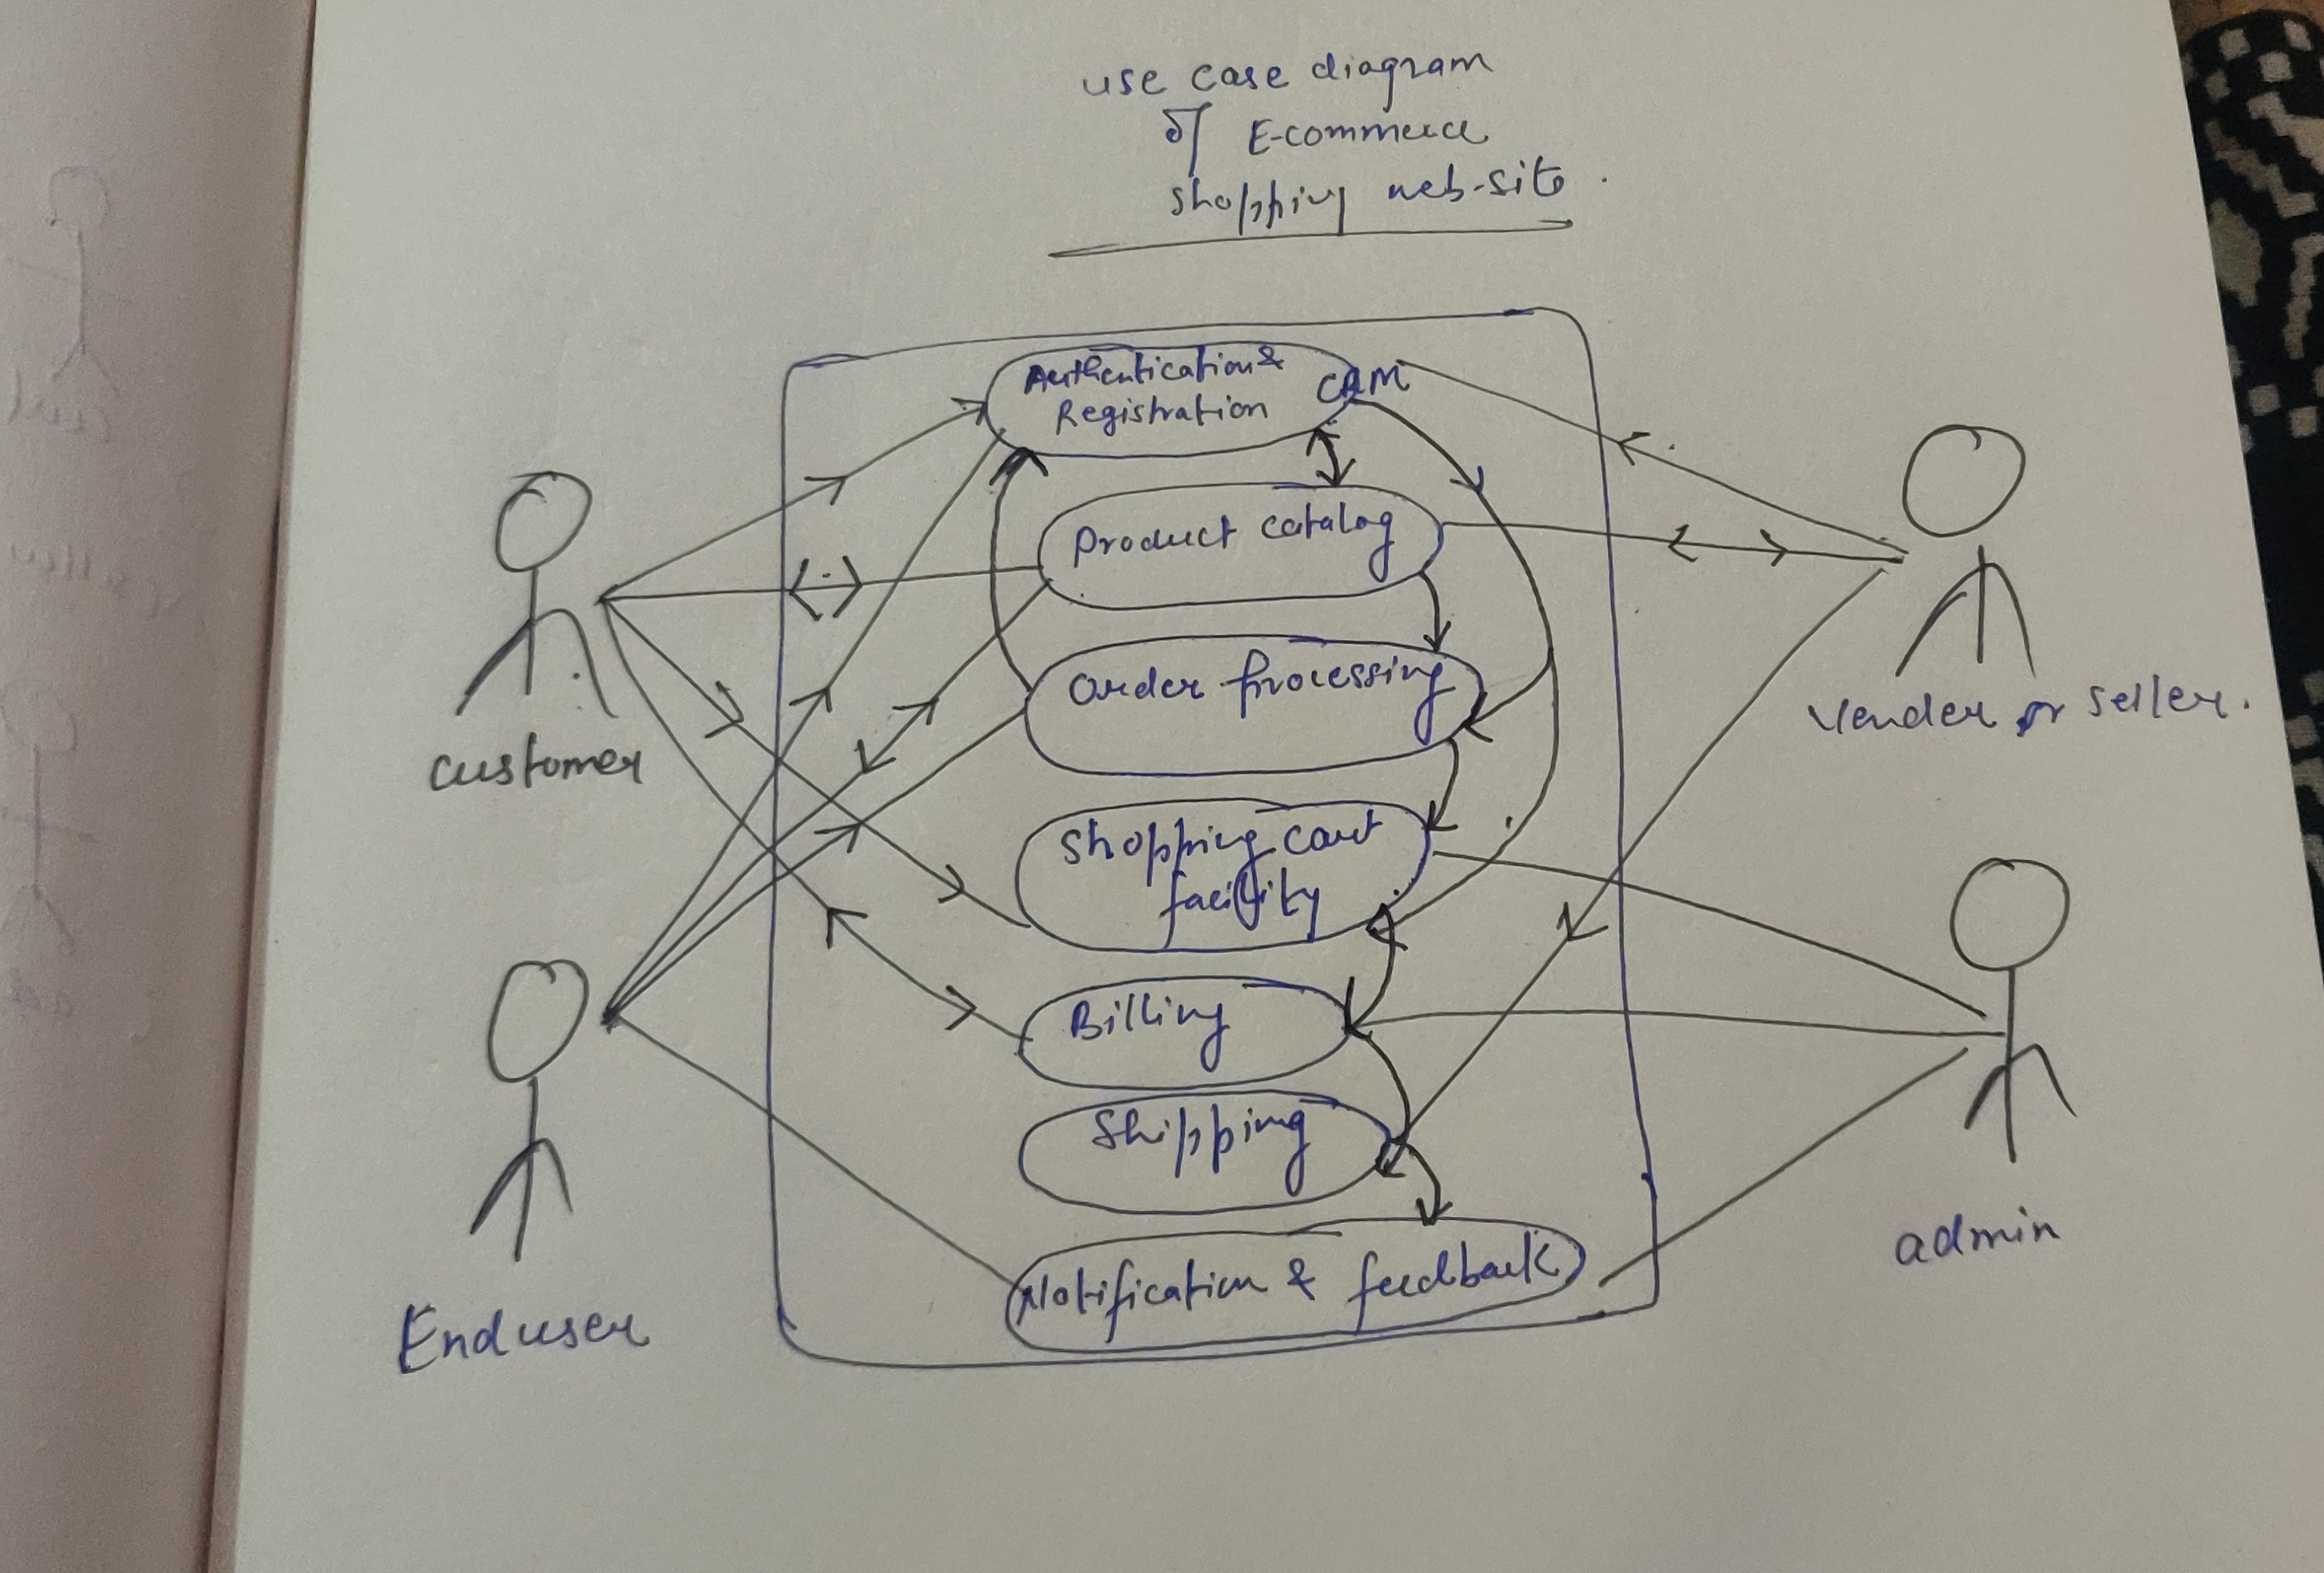 use case diagram
of E-commerce
shopping web-site.
Authentication &
Registration
CRM
Product catalog
Order processing
Shopping cart
facility
Billing
Shipping
Notification & feedback
customer
End user
Vender or seller.
admin